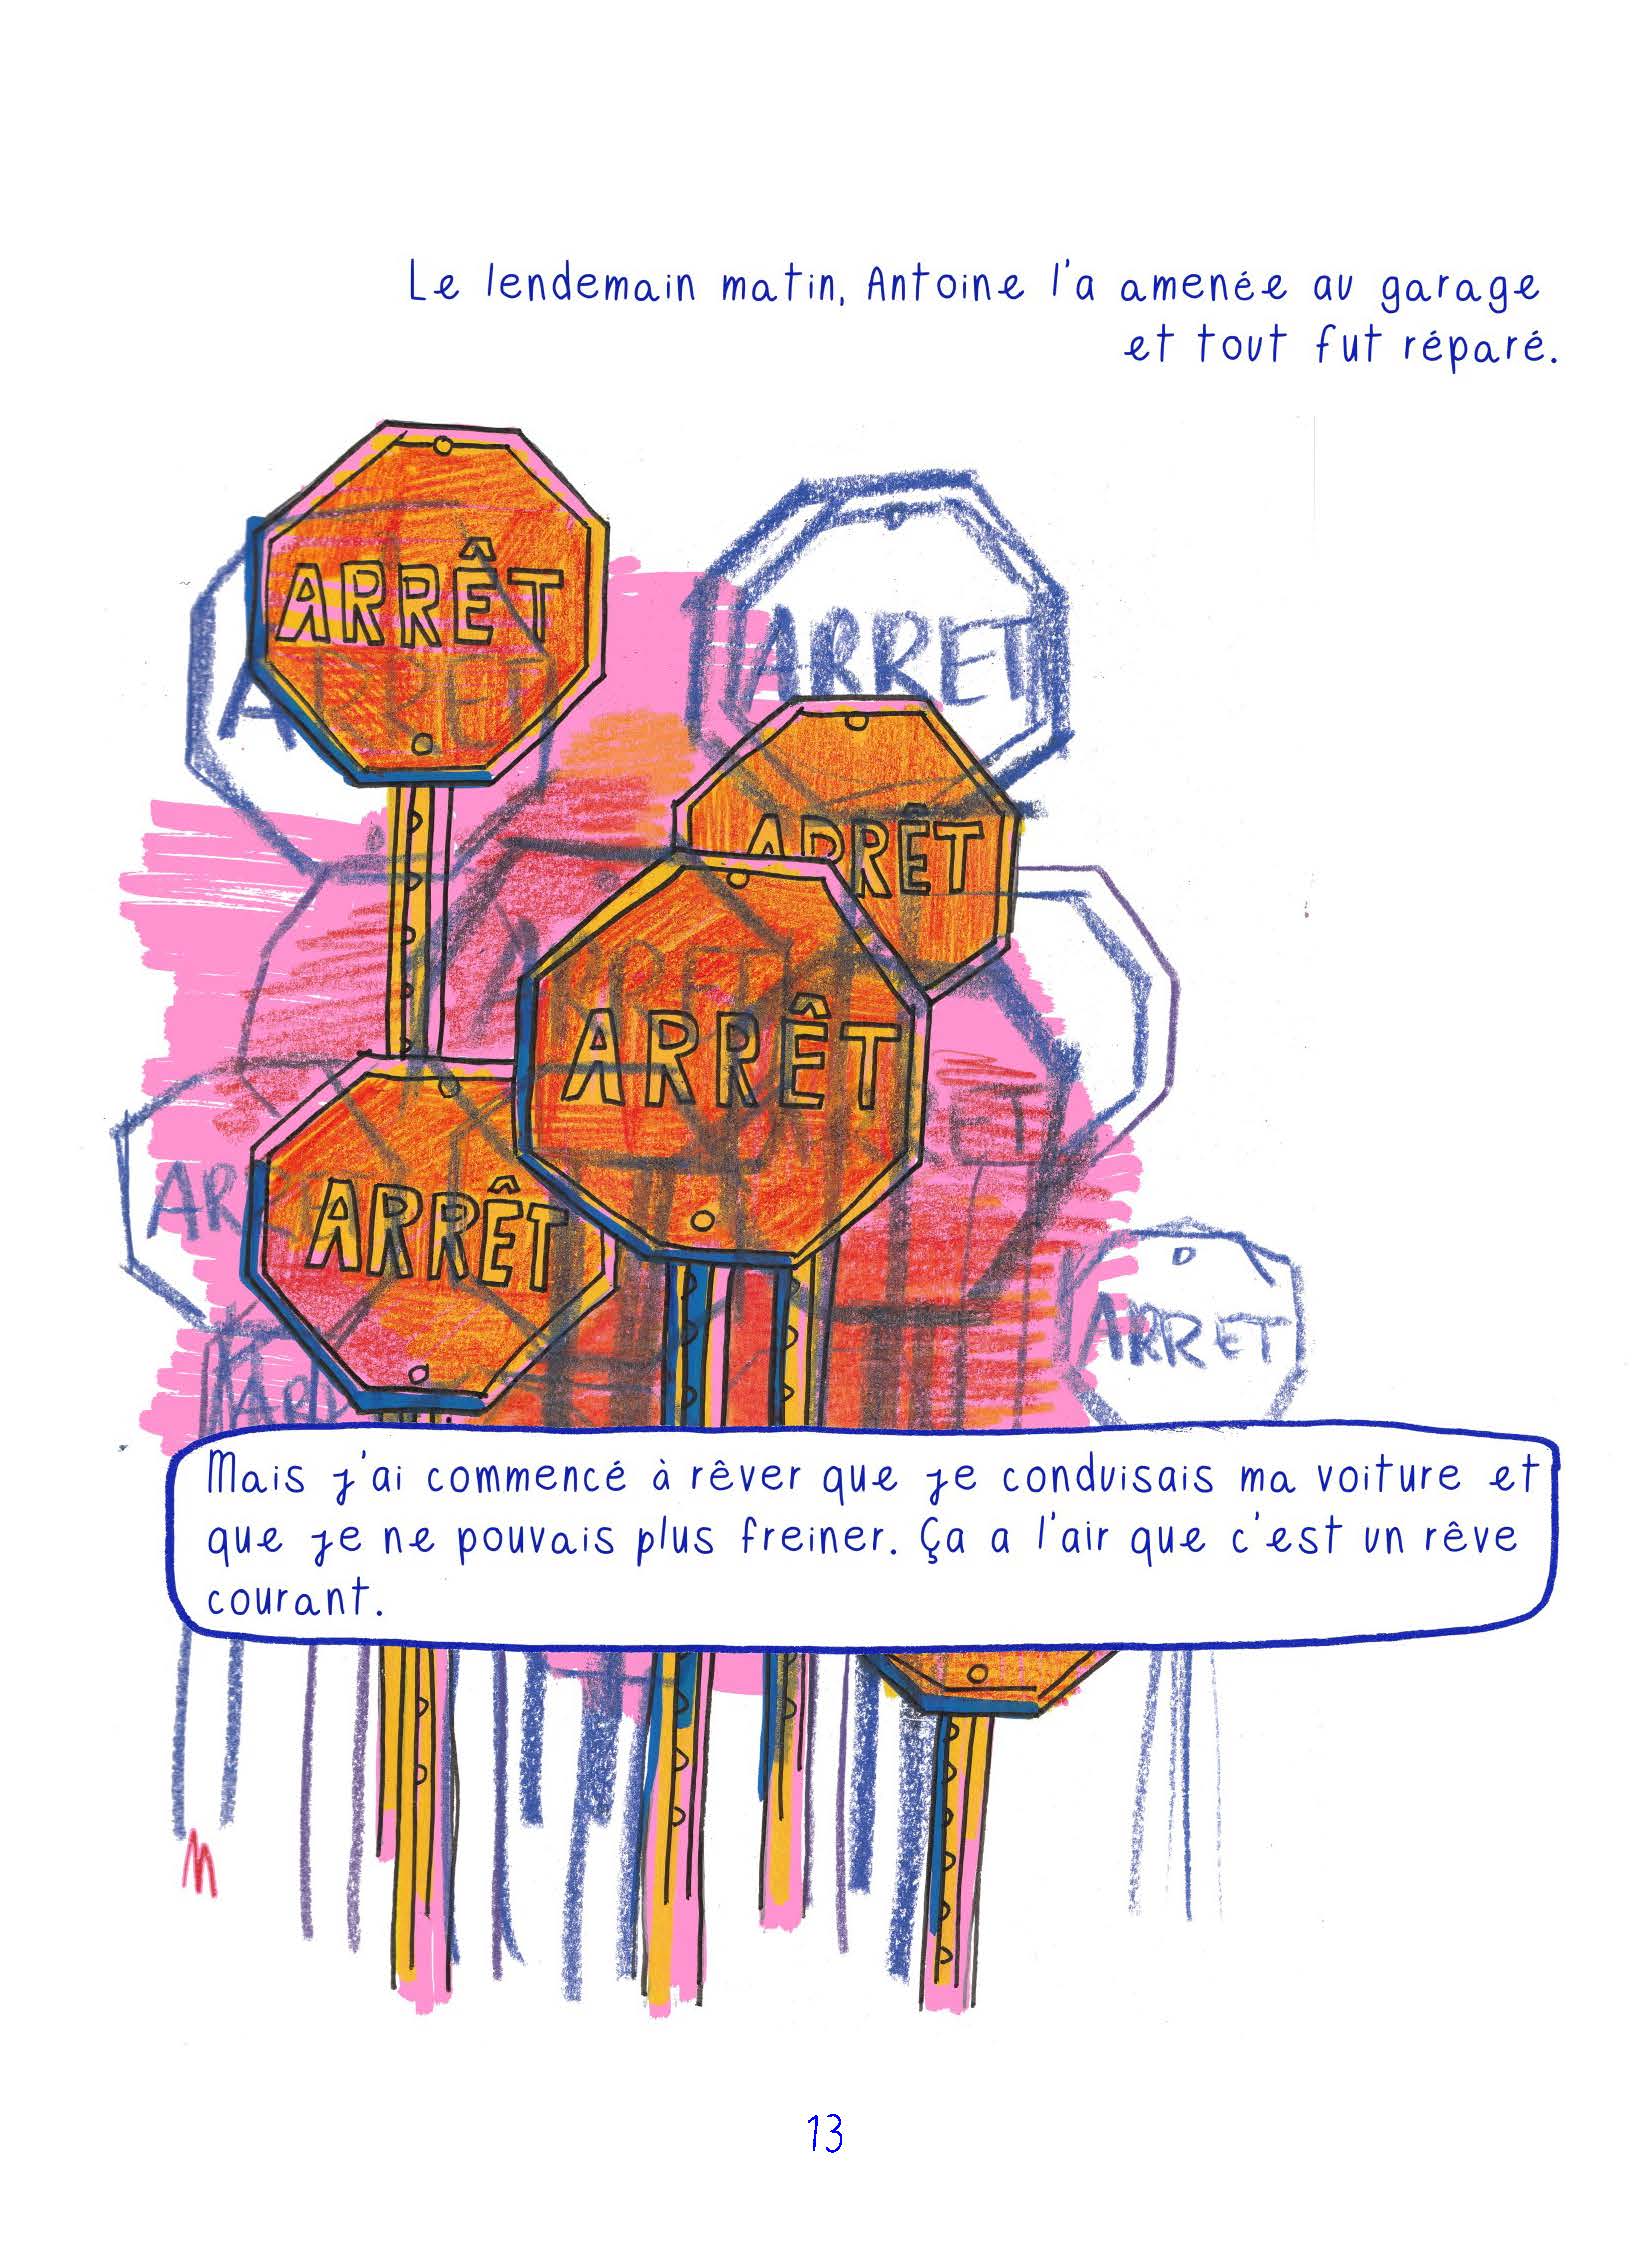 Le lendemain matin, Antoine l'a amenée au garage
et tout fut réparé.
ARRÊT
ARRET
ARRET
ARRÊT
ARRÊT
ARRÊT
ET
ARRET
Mais j'ai commencé à rêver que je conduisais ma voiture et
que je ne pouvais plus freiner. Ça a l'air que c'est un rêve
courant.
M
13